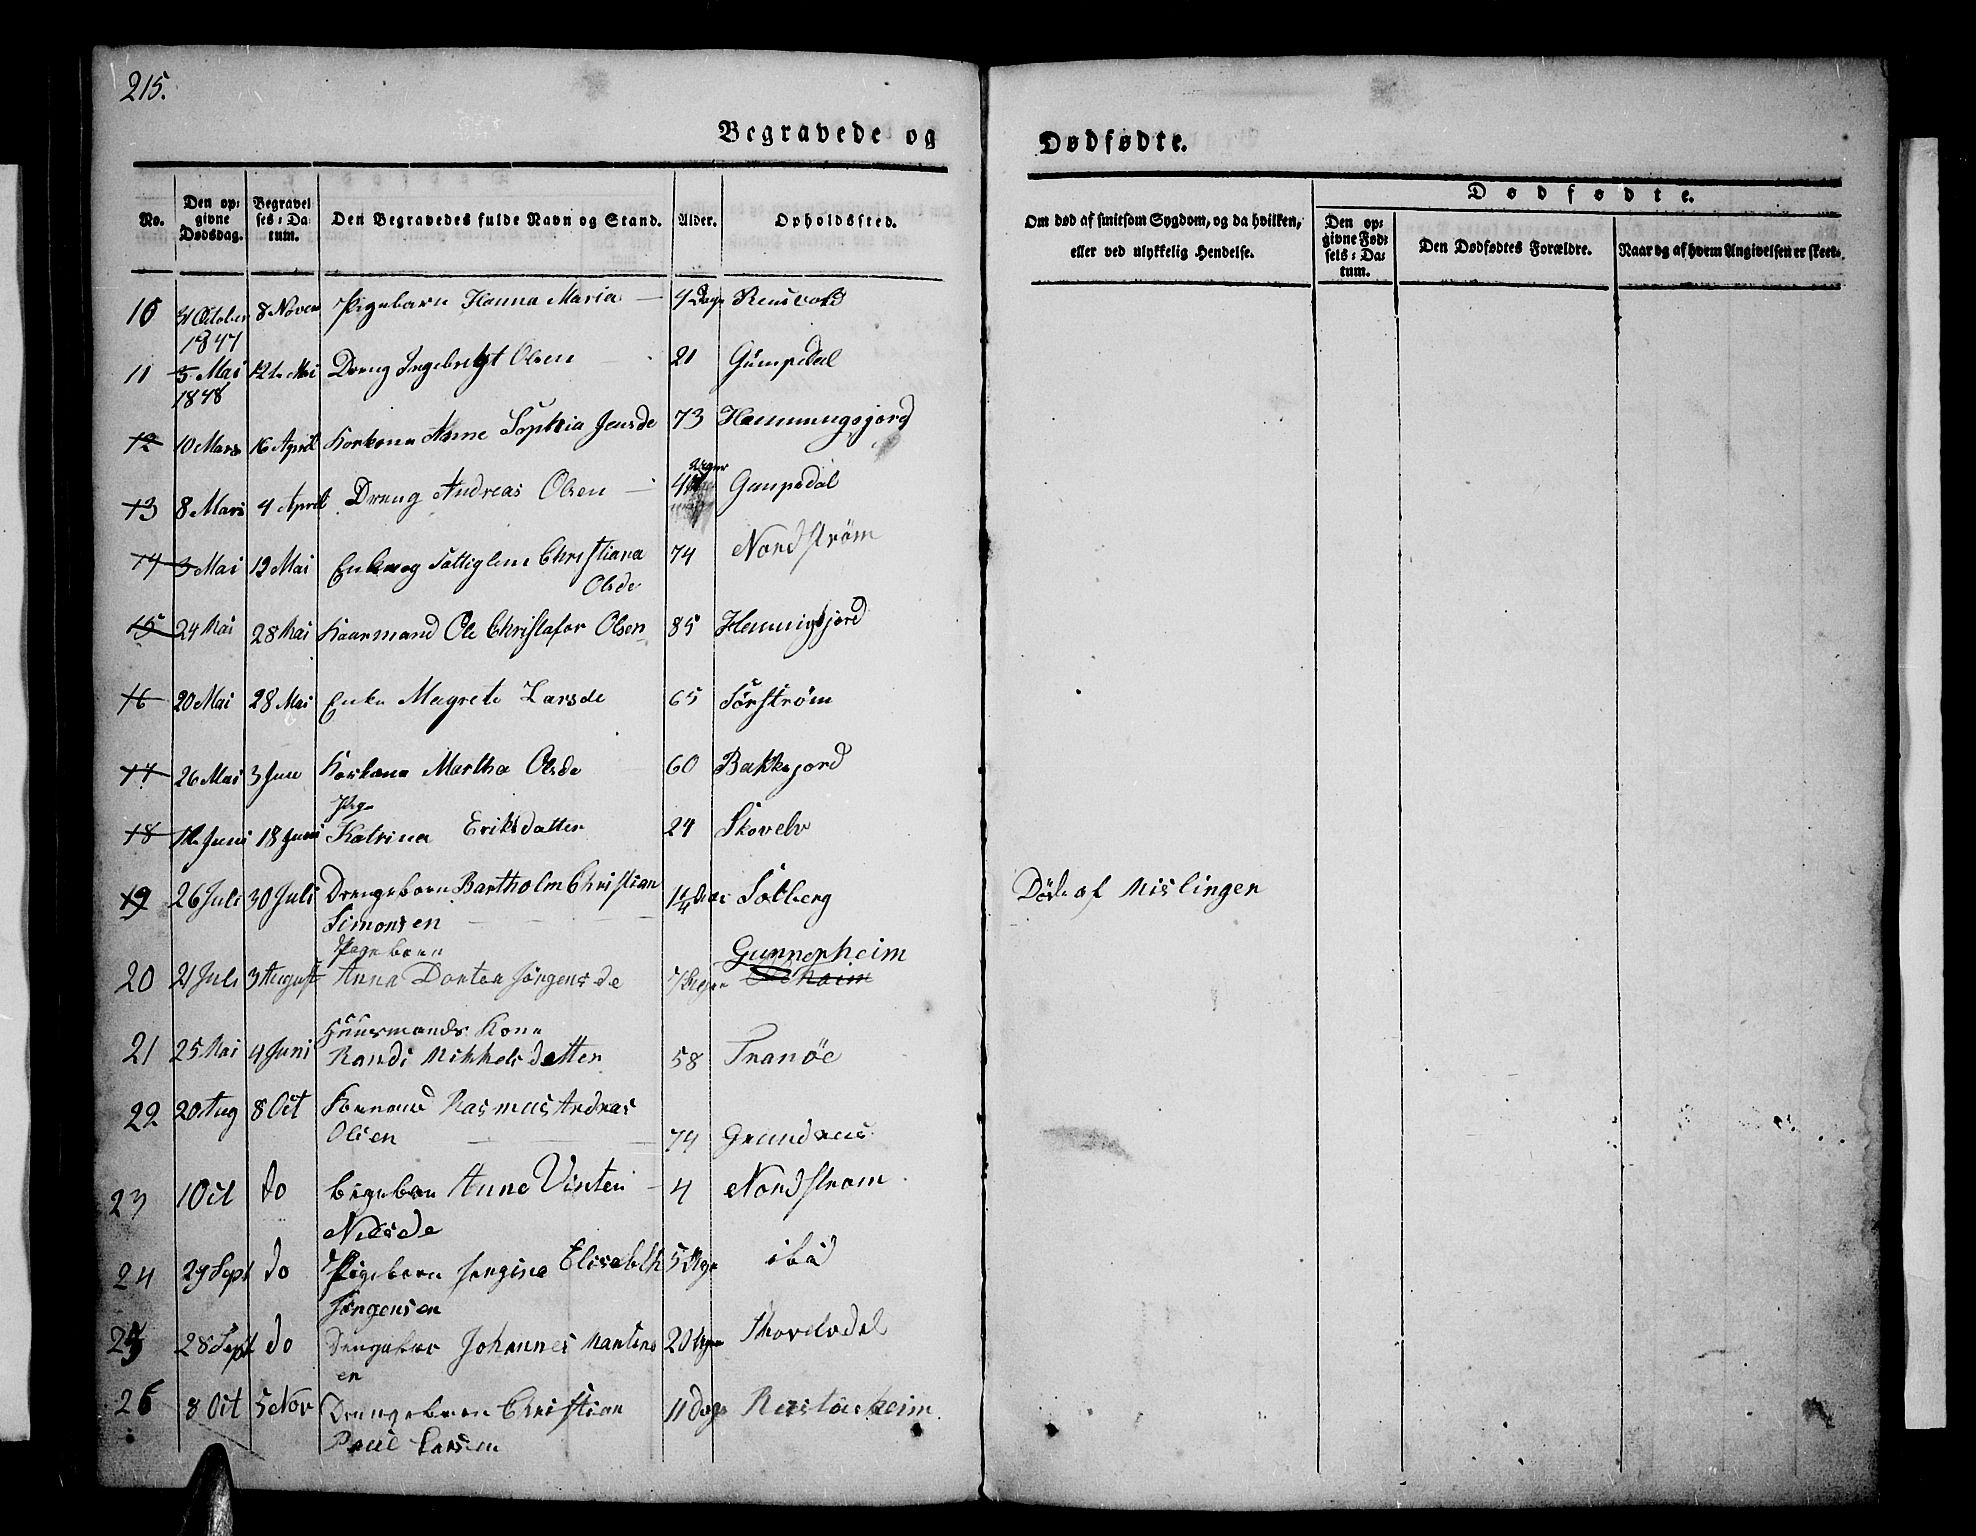 215.
Begravede og
Dødfødte.
No.
Den op:
givne
Dødsdag.
Begravel
ses: Da:
tum.
Den Begravedes fulde Navn og Stand.
Alder.
Opholdssted.
Om død af smitsom Sygdom, og da hvilken,
eller ved ulykkelig Hendelse.
Dødfødte.
Den op:
givne Fød:
sels: Da:
tum.
Den Dødfødtes Forældre.
Naar og af hvem Angivelsen er skeet.
10 31 October 8 Novem Pigebarn Hanna Maria 4 Dage
1847
11 5 Mai 12te Mai Dreng Ingebrigt Olsen 21 Gumpedal
1848
12 10 Mars 16 April Korkona Anne Sophia Jensde 73 Hemmingsjord
13 8 Mars 4 April Dreng Andreas Olsen 4 Uger Gumpedal
14 3 Mai 12 Mai Christiana 74 Nordstrøm
Olsde
15 24 Mai 28 Mai Kaarmand Ole Christofor Olsen 85 Hemmigsjord
16 20 Mai 28 Mai Enke Magrete Larsde 65 Sørstrøm
17 26 Mai 3 Juni Korkona Martha Olsde 60 Bakkejord
Pige
18 12 Juni 18 Juni Katrina Eriksdatter 24 Skovelv
19 26 Juli 30 Juli Drengebarn Bartholm Christian 1 1/4 Solberg Døde af Mislinger
Simonsen
Pigebarn Gunnerheim
20 21 Juli 3 August Anna Dortea Jørgensde 7 Uger
Huusmands Kone
21 25 Mai 4 Juni Randi Mikkelsdatter 58 Tranöe
22 20 Aug 8 Oct Rasmus Andreas
Olsen 74
23 1 Oct do Anne 4 Nordstrøm
Nilsde
24 29 Sept do Pigebarn Jørgine Elisabeth 5 Uger ibid
Jørgensen
25 28 Sept do Johannes Martins 2 Skovelvdal
en
26 8 Oct 5 Nov Drengebarn Christian 11 Dage
Larsen